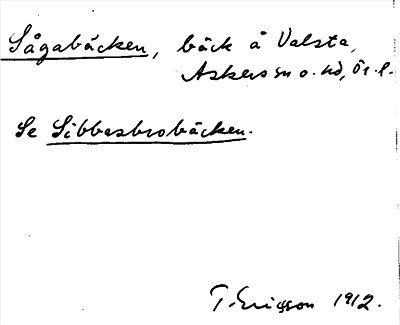 Sågabäcken, bäck å Valsta,
Askers sn o. hd, Ör. l.
Se Sibbasbrobäcken.
T. Ericsson 1912.